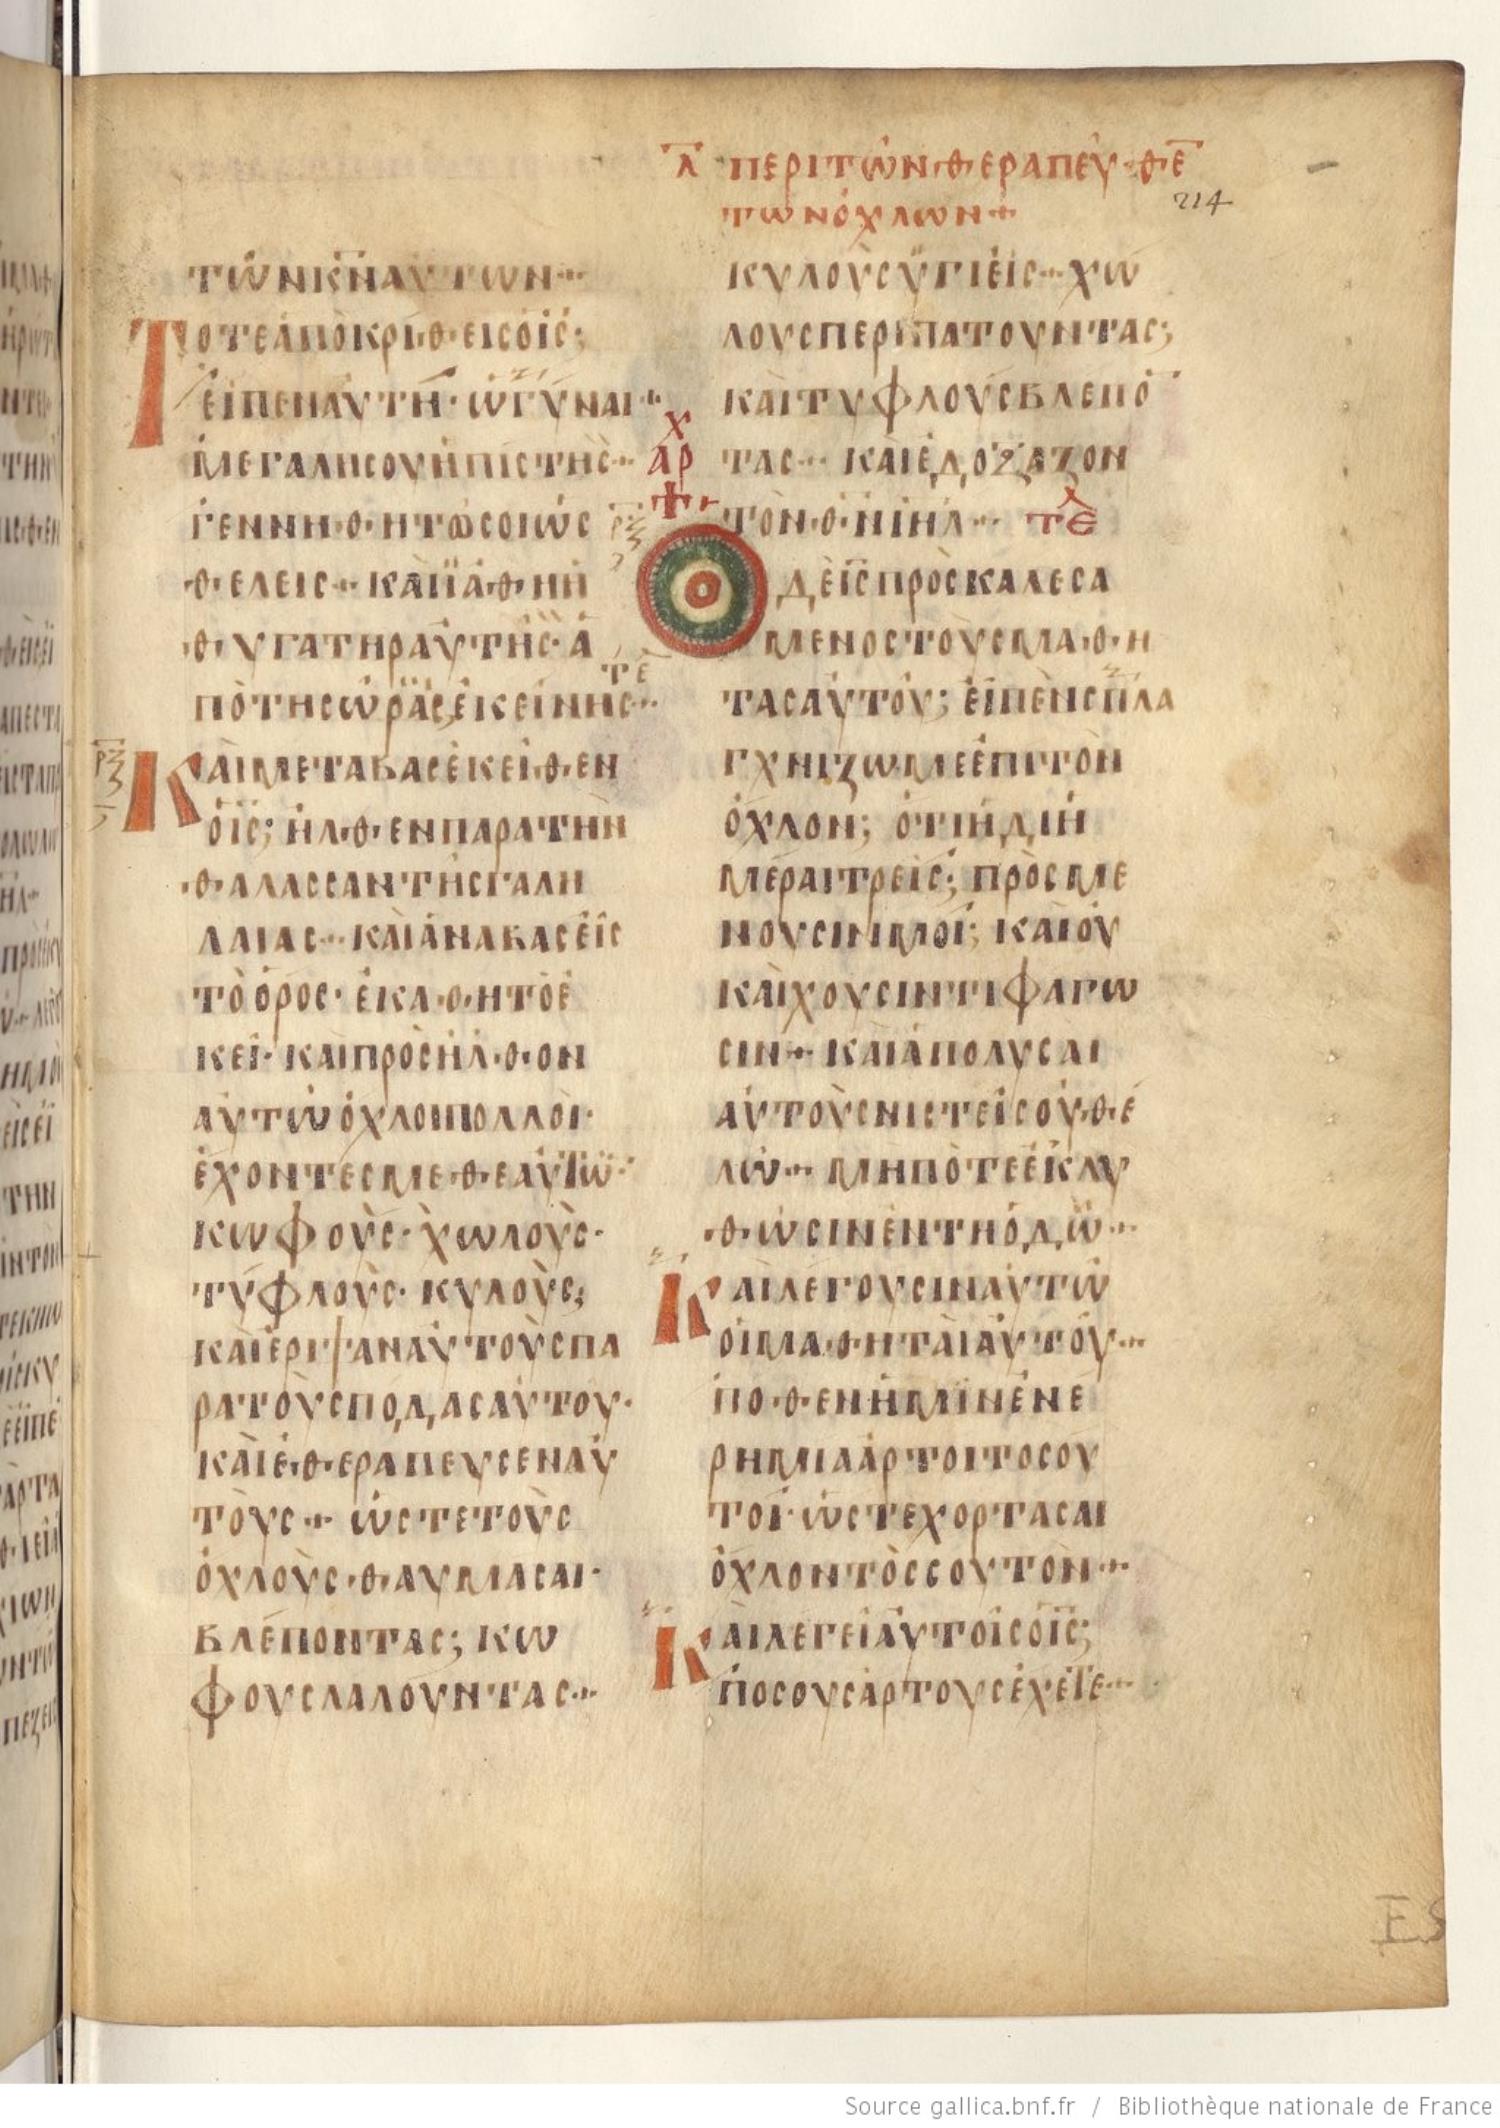 λ ΠΕΡΙ ΤΩΝ ΘΕΡΑΠΕΥΘΕ
ΤΩΝ ΟΧΛΩΝ
214
ΤΩΝ Κ̅Ν̅ ΑΥΤΩΝ
ΤΟΤΕ ΑΠΟΚΡΙΘΕΙΣ Ο Ι̅Σ̅;
ΕΙΠΕΝ ΑΥΤΗ· Ω ΓΥΝΑΙ
ΜΕΓΑΛΗ ΣΟΥ Η ΠΙΣΤΗΣ
ΓΕΝΝΗΘΗΤΩ ΣΟΙ ΩΣ
ΘΕΛΕΙΣ ΚΑΙ ΙΑΘΗ Η
ΘΥΓΑΤΗΡ ΑΥΤΗΣ· Α
ΠΟ ΤΗΣ ΩΡΑΣ ΕΚΕΙΝΗΣ
ΤΕ
ΚΑΙ ΜΕΤΑΒΑΣ ΕΚΕΙΘΕΝ
Ο Ι̅Σ̅; ΗΛΘΕΝ ΠΑΡΑ ΤΗΝ
ΘΑΛΑΣΣΑΝ ΤΗΣ ΓΑΛΗ
ΛΑΙΑΣ ΚΑΙ ΑΝΑΒΑΣ ΕΙΣ
ΤΟ ΟΡΟΣ· ΕΚΑΘΗΤΟ Ε
ΚΕΙ· ΚΑΙ ΠΡΟΣΗΛΘΟΝ
ΑΥΤΩ ΟΧΛΟΙ ΠΟΛΛΟΙ·
ΕΧΟΝΤΕΣ ΜΕΘ ΕΑΥΤΩ
ΚΩΦΟΥΣ· ΧΩΛΟΥΣ·
ΤΥΦΛΟΥΣ· ΚΥΛΟΥΣ;
ΚΑΙ ΕΡΙΨΑΝ ΑΥΤΟΥΣ ΠΑ
ΡΑ ΤΟΥΣ ΠΟΔΑΣ ΑΥΤΟΥ·
ΚΑΙ ΕΘΕΡΑΠΕΥΣΕΝ ΑΥ
ΤΟΥΣ ΩΣΤΕ ΤΟΥΣ
ΟΧΛΟΥΣ ΘΑΥΜΑΣΑΙ·
ΒΛΕΠΟΝΤΑΣ; ΚΩ
ΦΟΥΣ ΛΑΛΟΥΝΤΑΣ
ΚΥΛΟΥΣ ΥΓΙΕΙΣ ΧΩ
ΛΟΥΣ ΠΕΡΙΠΑΤΟΥΝΤΑΣ;
ΚΑΙ ΤΥΦΛΟΥΣ ΒΛΕΠΟ
ΤΑΣ ΚΑΙ ΕΔΟΞΑΖΟΝ
ΤΟΝ Θ̅Ν̅ Ι̅Η̅Λ̅ ΤΕΛ
ΑΡΧ
Ο ΔΕ Ι̅Σ̅ ΠΡΟΣΚΑΛΕΣΑ
ΜΕΝΟΣ ΤΟΥΣ ΜΑΘΗ
ΤΑΣ ΑΥΤΟΥ; ΕΙΠΕΝ ΣΠΛΑ
ΓΧΝΙΖΩΜΕ ΕΠΙ ΤΟΝ
ΟΧΛΟΝ; ΟΤΙ ΗΔΙ Η
ΜΕΡΑΙ ΤΡΕΙΣ; ΠΡΟΣΜΕ
ΝΟΥΣΙΝ ΜΟΙ; ΚΑΙ ΟΥ
ΚΑΙΧΟΥΣΙΝ ΤΙ ΦΑΓΩ
ΣΙΝ ΚΑΙ ΑΠΟΛΥΣΑΙ
ΑΥΤΟΥΣ ΝΙΣΤΕΙΣ ΟΥ ΘΕ
ΛΩ ΜΗΠΟΤΕ ΕΚΛΥ
ΘΩΣΙΝ ΕΝ ΤΗ ΟΔΩ
ΚΑΙ ΛΕΓΟΥΣΙΝ ΑΥΤΩ
ΟΙ ΜΑΘΗΤΑΙ ΑΥΤΟΥ
ΠΟΘΕΝ ΗΜΙΝ ΕΝ Ε
ΡΗΜΙΑ ΑΡΤΟΙ ΤΟΣΟΥ
ΤΟΙ· ΩΣΤΕ ΧΟΡΤΑΣΑΙ
ΟΧΛΟΝ ΤΟΣΣΟΥΤΟΝ
ΚΑΙ ΛΕΓΕΙ ΑΥΤΟΙΣ Ο Ι̅Σ̅;
ΠΟΣΟΥΣ ΑΡΤΟΥΣ ΕΧΕΤΕ
Source gallica.bnf.fr / Bibliothèque nationale de France